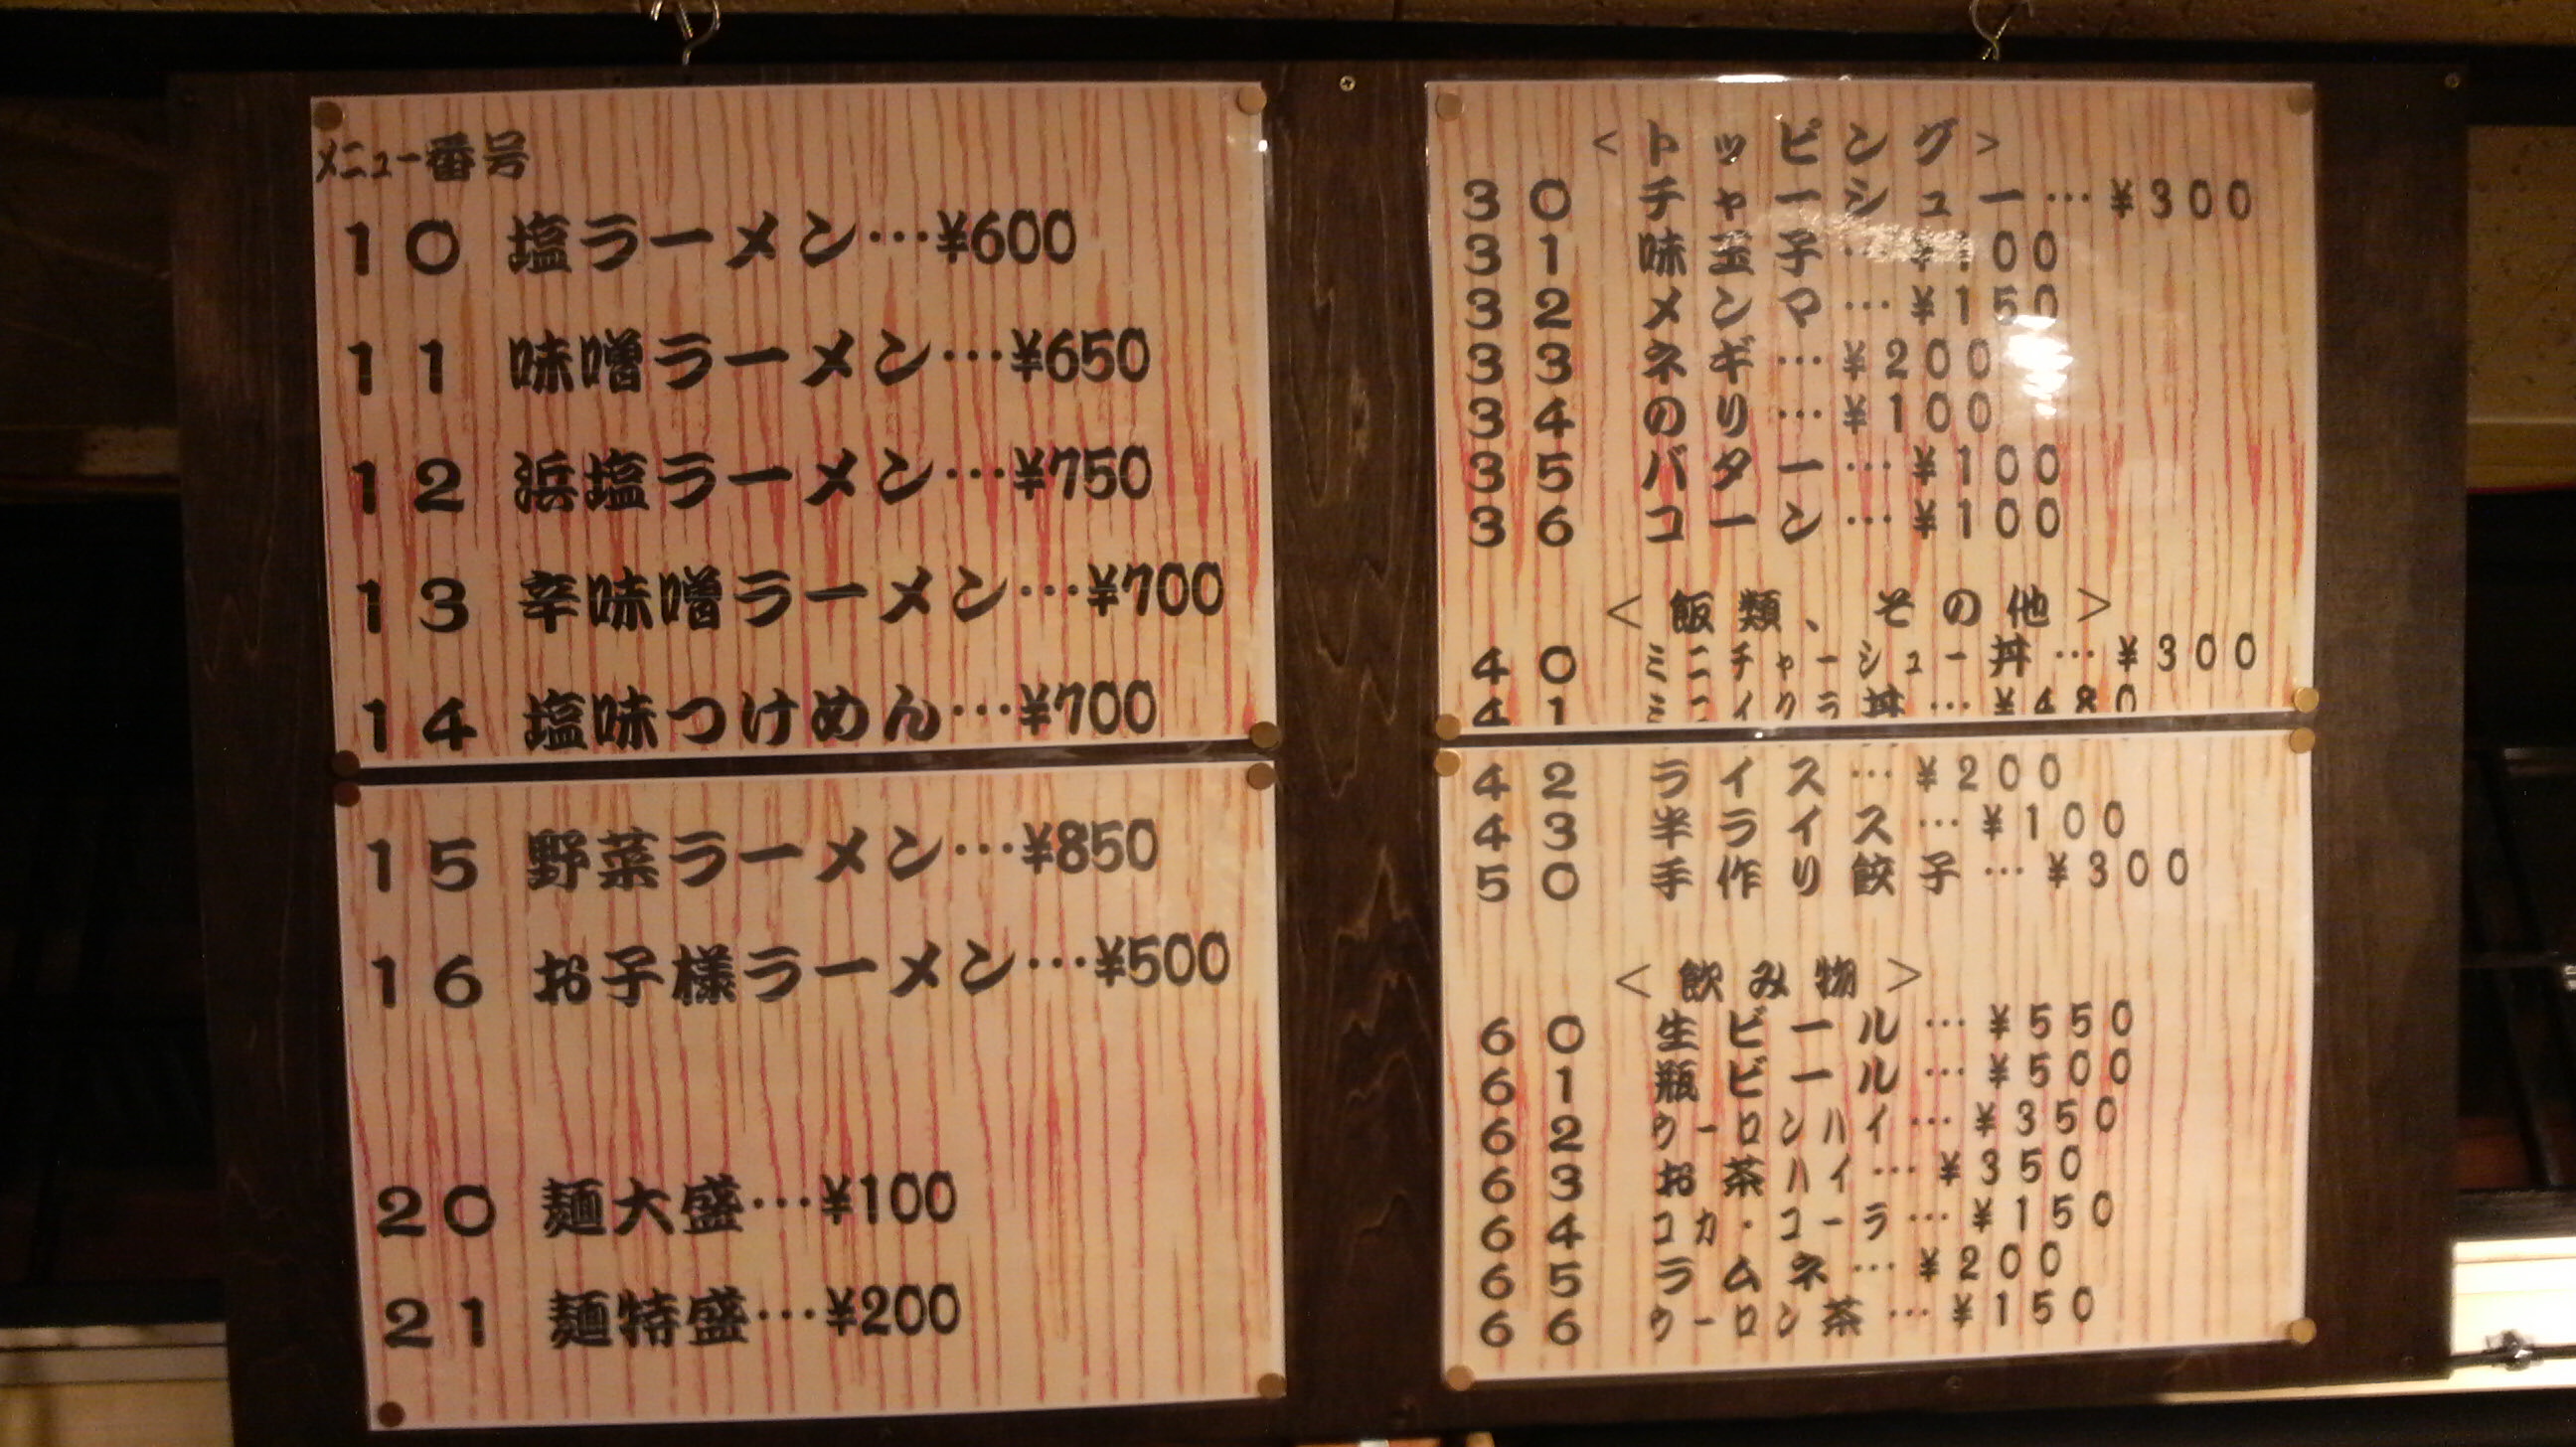 メニュー番号
10 塩ラーメン…¥600
11 味噌ラーメン…¥650
12 浜塩ラーメン…¥750
13 辛味噌ラーメン…¥700
14 塩味つけめん…¥700
15 野菜ラーメン…¥850
16 お子様ラーメン…¥500
20 麺大盛…¥100
21 麺特盛…¥200
<トッピング>
30 チャーシュー…¥300
31 味玉子…¥100
32 メンマ…¥150
33 ネギ…¥200
34 のり…¥100
35 バター…¥100
36 コーン…¥100
<飯類、その他>
40 ミニチャーシュー丼…¥300
41 ミニイクラ丼…¥480
42 ライス…¥200
43 半ライス…¥100
50 手作り餃子…¥300
<飲み物>
60 生ビール…¥550
61 瓶ビール…¥500
62 ウーロンハイ…¥350
63 お茶ハイ…¥350
64 コカ・コーラ…¥150
65 ラムネ…¥200
66 ウーロン茶…¥150